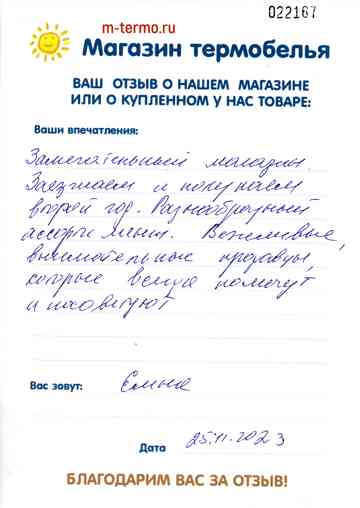 022167
m-termo.ru
Магазин термобелья
ВАШ ОТЗЫВ О НАШЕМ МАГАЗИНЕ
ИЛИ О КУПЛЕННОМ У НАС ТОВАРЕ:
Ваши впечатления:
Замечательный магазин.
Заезжаем и покупаем
второй год. Разнообразный
ассортимент. Вежливые,
внимательные продавцы,
которые всегда помогут
и посоветуют
Вас зовут: Елена
Дата 25.11.2023
БЛАГОДАРИМ ВАС ЗА ОТЗЫВ!